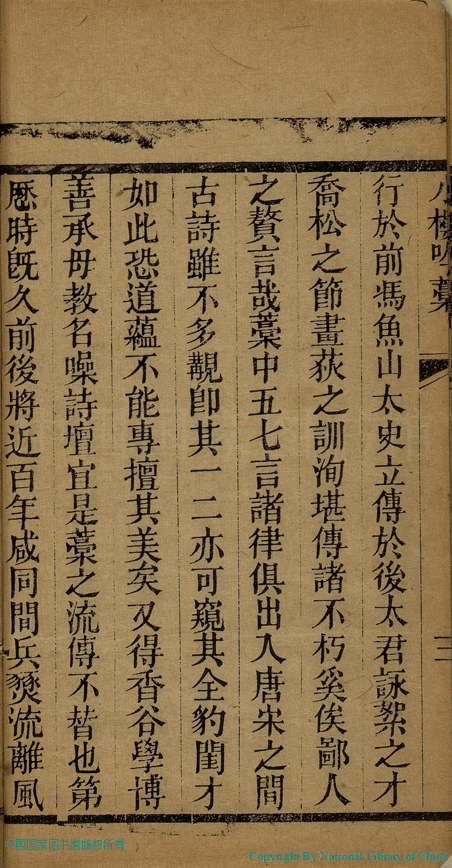 小樓吟藁
三
行於前馮魚山太史立傳於後太君詠絮之才
喬松之節畫荻之訓洵堪傳諸不朽奚俟鄙人
之贅言哉藁中五七言諸律俱出入唐宋之間
古詩雖不多觀卽其一二亦可窺其全豹閨才
如此恐道蘊不能專擅其美矣又得香谷學博
善承母教名噪詩壇宜是藁之流傳不朁也第
歷時旣久前後將近百年咸同間兵燹流離風
中国国家图书馆版权所有
Copyright By National Library of China